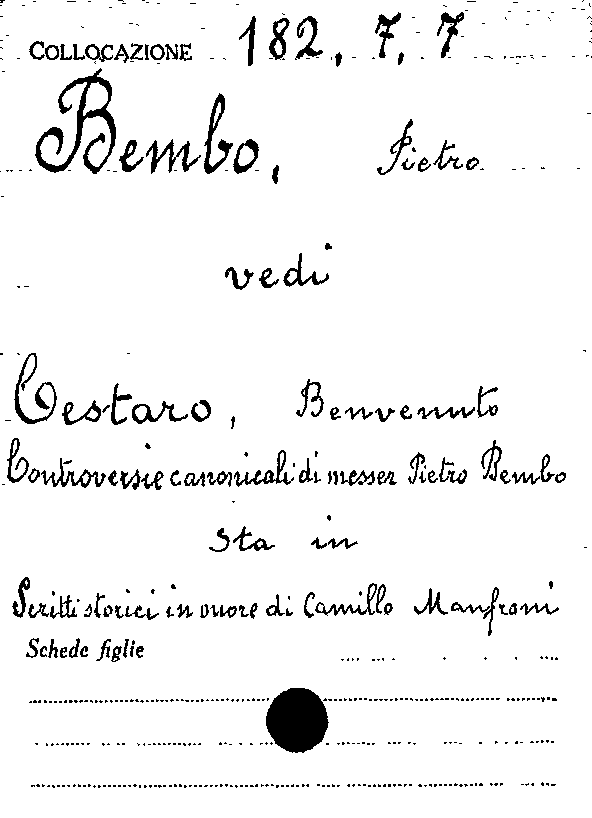 COLLOCAZIONE 182, 7, 7
Bembo, Pietro
vedi
Cestaro, Benvenuto
Controversie canonicali di messer Pietro Bembo
Sta in
Scritti storici in onore di Camillo Manfroni
Schede figlie